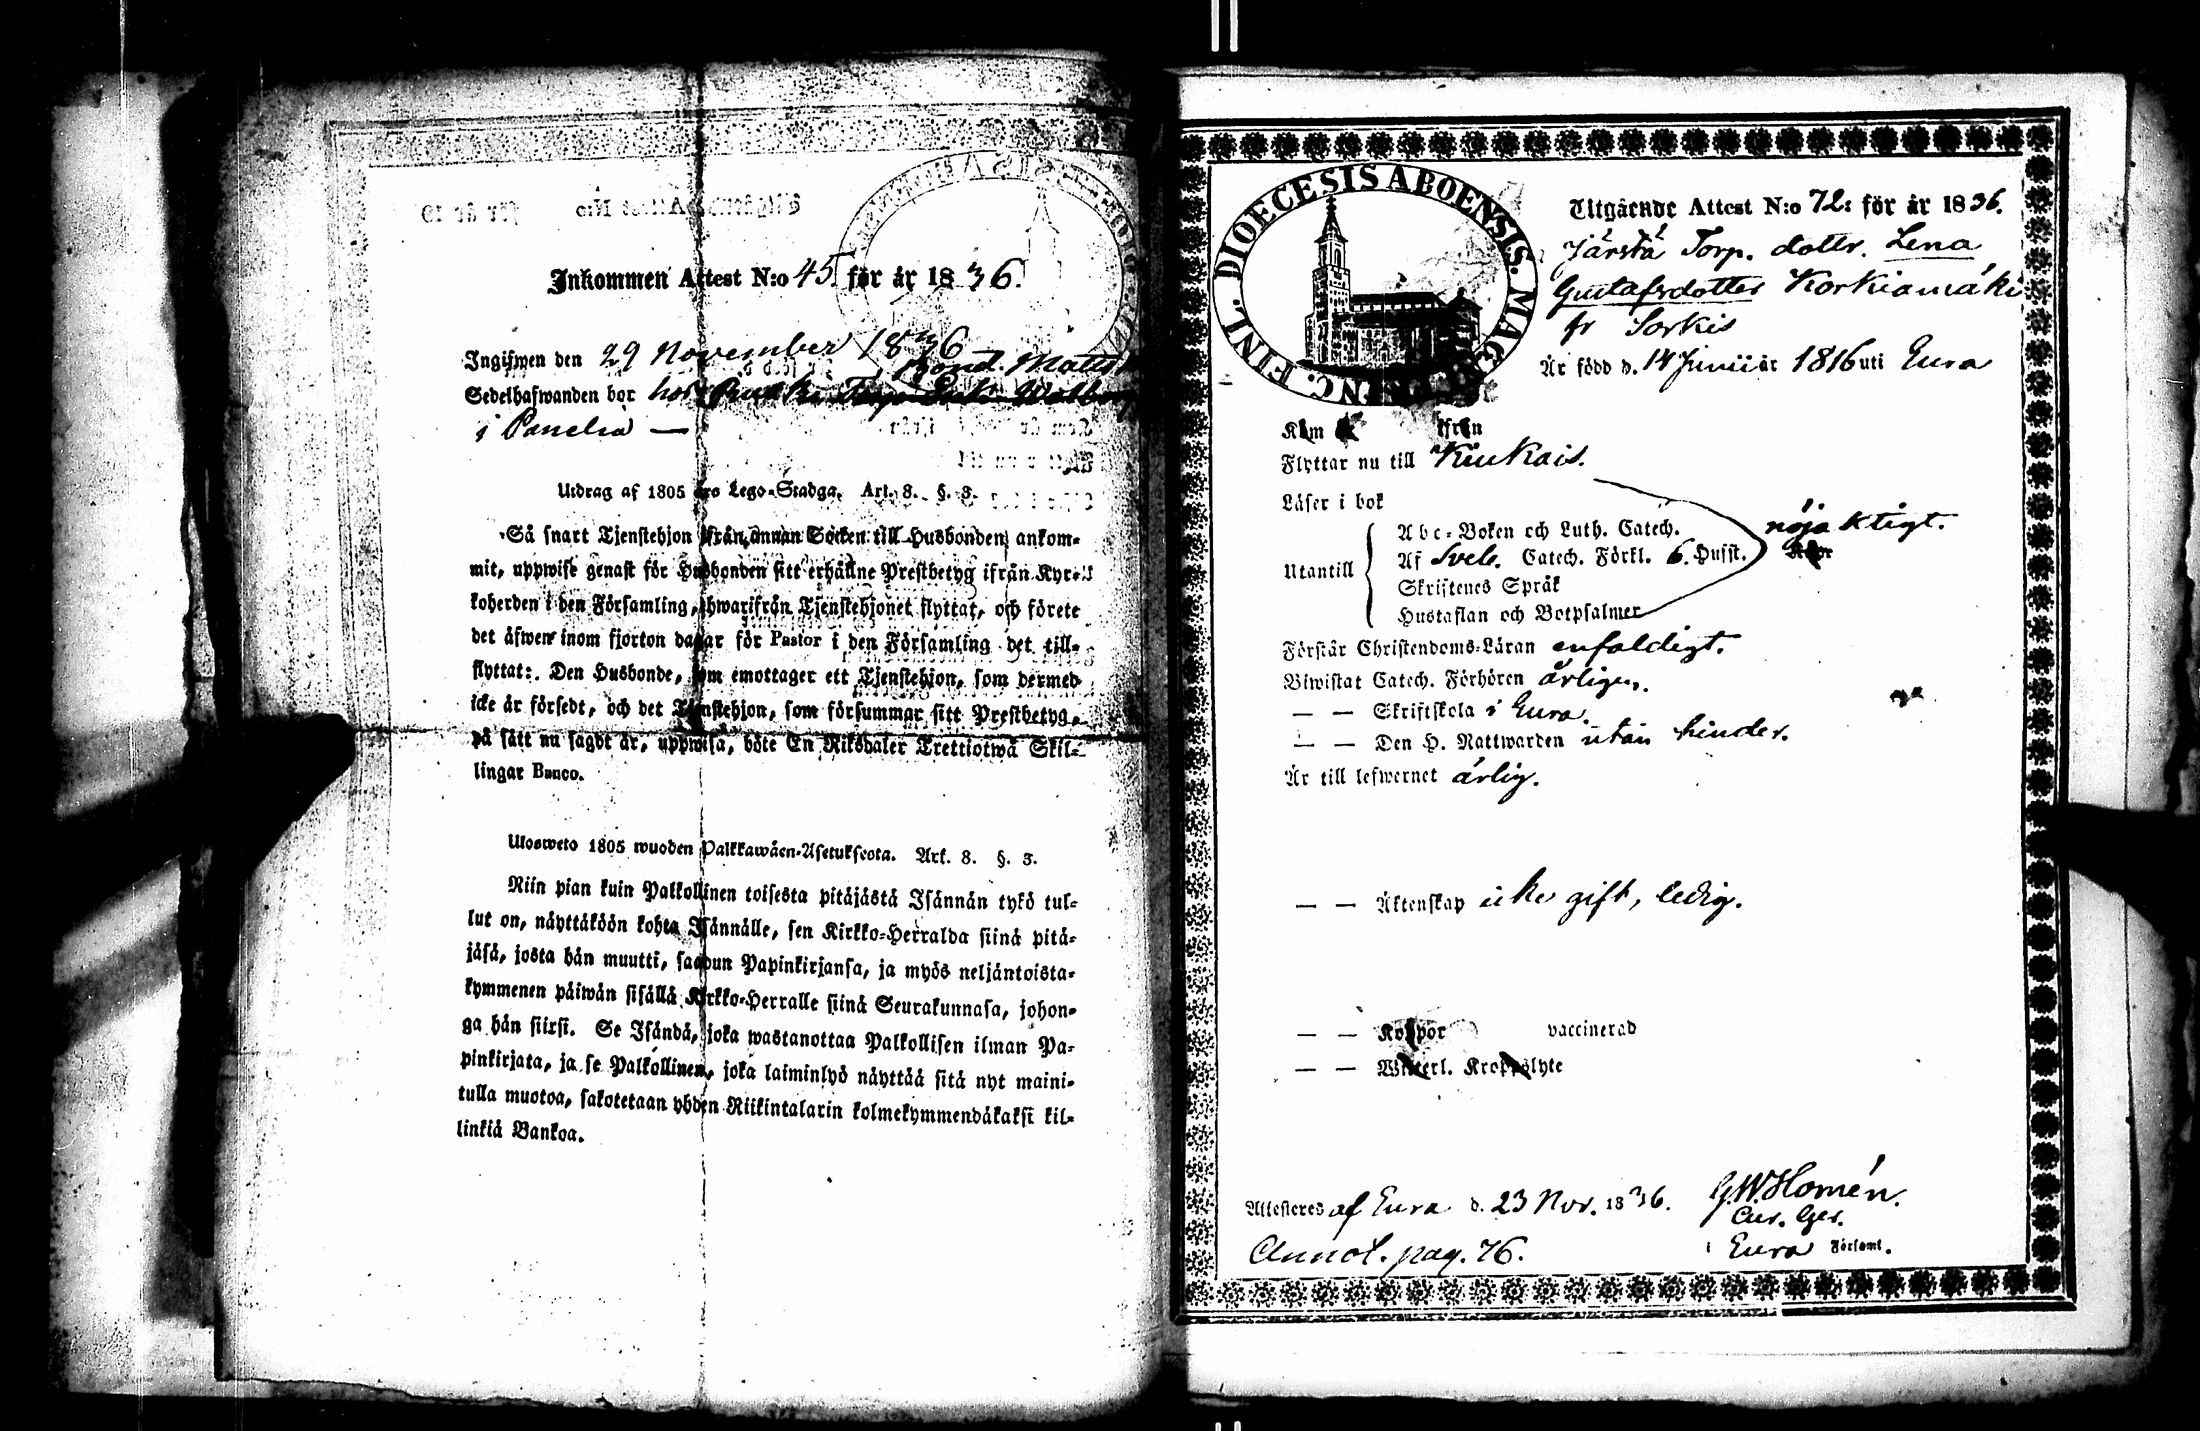 Inkommen Attest N:o 45. för år 1836.
Ingifwen den 29 November 1836
Bond. Matts
Sedelhafwanden bor hos
i Panelia —
Utdrag af 1805 års Lego-Stadga. Art. 8. §. 3.
Så snart Tjenstehjon ifrån annan Socken till Husbonden ankom-
mit, uppwise genast för Husbonden sitt erhållne Prestbetyg ifrån Kyr-
koherden i den Församling, hwarifrån Tjenstehjonet flyttat, och förete
det äfwen inom fjorton dagar för Pastor i den Församling det till-
flyttat: Den Husbonde, som emottager ett Tjenstehjon, som dermed
icke är försedt, och det Tjenstehjon, som försummar sitt Prestbetyg,
på sätt nu sagdt är, uppwisa, böte En Riksdaler Trettiotwå Skil-
lingar Banco.
Ulosweto 1805 wuoden Palkkawäen-Asetuksesta. Art. 8. §. 3.
Niin pian kuin Palkollinen toisesta pitäjästä Isännän tykö tul-
lut on, näyttäköön kohta Isännälle, sen Kirkko-Herralda siinä pitä-
jäsä, josta hän muutti, saadun Papinkirjansa, ja myös neljäntoista-
kymmenen päiwän sisällä Kirkko-Herralle siinä Seurakunnasa, johon-
ga hän siirsi. Se Isändä, joka wastanottaa Palkollisen ilman Pa-
pinkirjata, ja se Palkollinen, joka laiminlyö näyttää sitä nyt maini-
tulla muotoa, sakotetaan yhden Riikintalarin kolmekymmendäkaksi kil-
linkiä Bankoa.
DIOECESIS ABOENSIS. MAG. PRINC. FINL.
Utgående Attest N:o 72: för år 1836.
Torp. dottr. Lena
Gustafsdotter Korkiamäki
fr Sorkis
Är född d. 14 Junii år 1816 uti Eura
Kom ifrån
Flyttar nu till Kiukais.
Läser i bok
nöjaktigt.
Utantill
Abc-Boken och Luth. Catech.
Af Sveb. Catech. Förkl. 6. Hufst.
Skriftenes Språk
Hustaflan och Botpsalmer
Förstår Christendoms-Läran enfaldigt.
Biwistat Catech. Förhören årligen.
— — Skriftskola i Eura.
— — Den H. Nattwarden utan hinder.
Är till lefwernet ärlig.
— — Äktenskap icke gift, ledig.
— — Koppor vaccinerad
— — Widerl. Kroppslyte
Attesteres af Eura d. 23 Nov. 1836. G.W. Homén.
Annot. pag. 76. i Eura Församl.